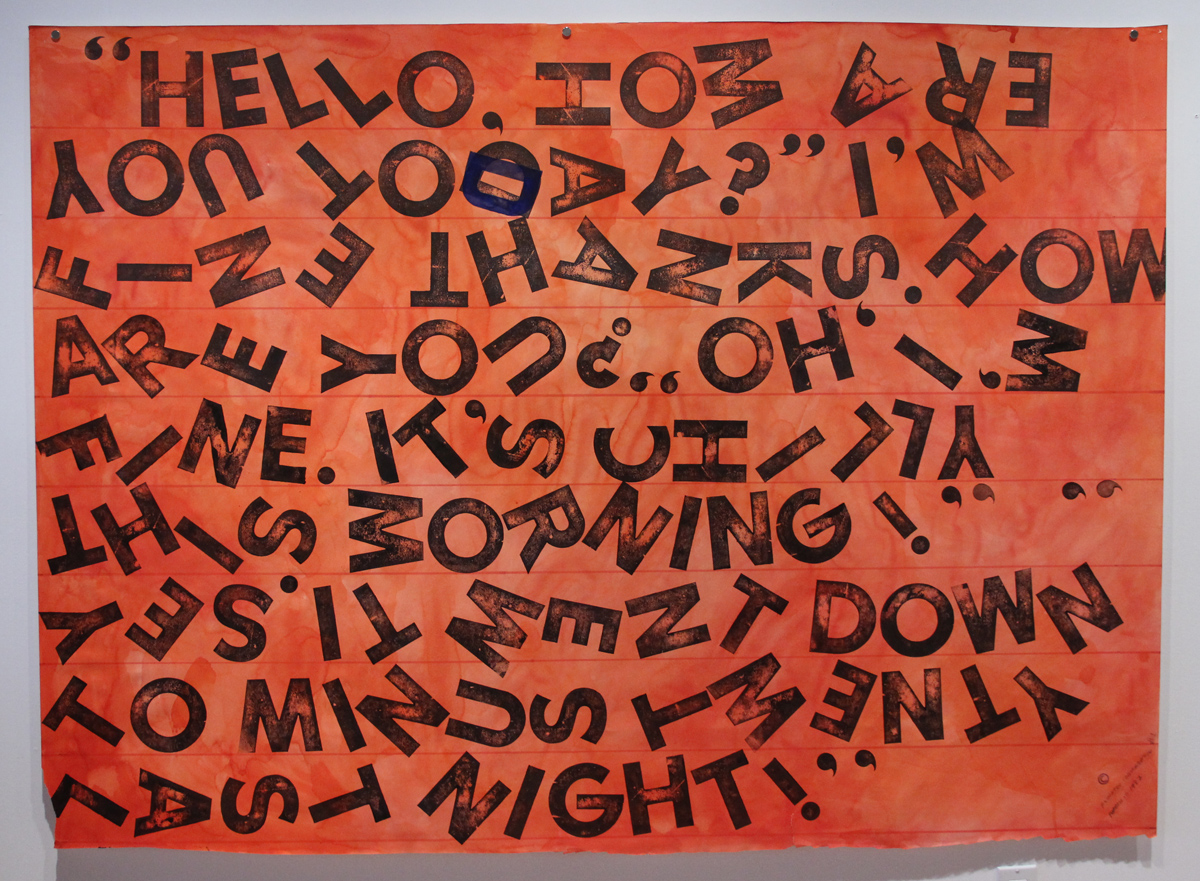 “HELLO, HOW ARE
YOU TODAY?” I'M
FINE THANKS. HOW
ARE YOU? “OH, I'M
FINE. IT'S CHILLY
THIS MORNING!” “
YES. IT WENT DOWN
TO MINUS TWENTY
LAST NIGHT!”